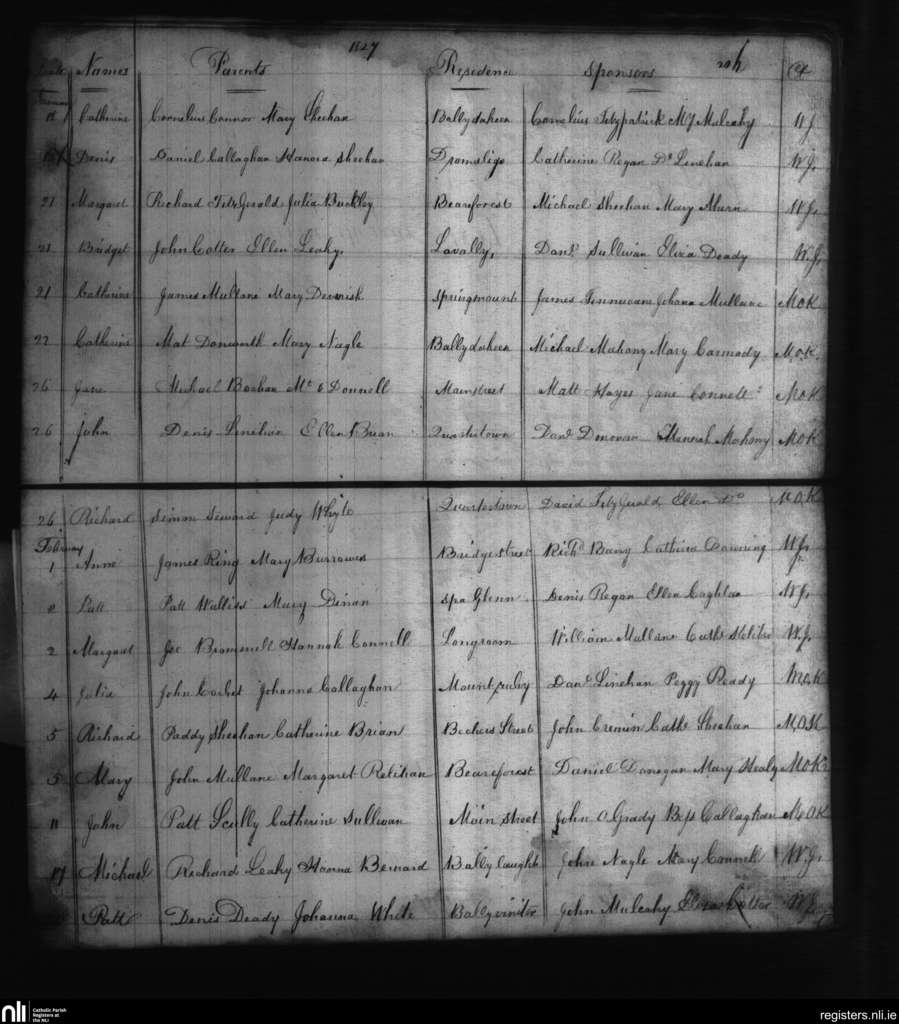 1827
Names Parents Residence Sponsors
Catherine Cornelius Connor Mary Sheehan Ballydaheen Cornelius Fitzpatrick My Mulcahy W J
Denis Daniel Callaghan Hanora Sheehan Dromsligo Catherine Regan Ds Linehan W J.
21 Margaret Richard FitzGerald Julia Buckley Bearforest Michael Sheehan Mary Ahern W J.
21 Bridget John Cotter Ellen Leahy. Lavally, Danl. Sullivan Eliza Deady W. J.
21 Catherine James Mullane Mary Springmount James Finnucane Johana Mullane M O K
22 Catherine Mat Danworth Mary Nagle Ballydaheen Michael Mahony Mary Carmody M.O.K.
26 Jane Michael Mainstreet Matt Hayes Jane Connell M O K
26 John Denis Linehan Ellen Brian Quartertown Danl. Donovan Hannah Mahony M O K
26 Richard Simon Seward Judy Whyte Quartertown David FitzGerald Ellen do M.O.K
February
1 Anne James Ring Mary Burrowes Bridgestreet Richd Barry Cathrine Downing W J.
2 Patt Patt Walliss Mary Dinan Spa Glenn Denis Regan Ellen Coghlan W J.
2 Margaret Hannah Connell Longroom William Mullane Cathe W. J.
4 Julia John Corbet Johanna Callaghan Mount Danl Linehan Peggy Ready M.O.K
5 Richard Paddy Sheehan Catherine Brian Bechers Street John Cremin Cathe Sheehan M.O.K
5 Mary John Mullane Margaret Relihan Beareforest Daniel Donegan Mary Healy M.O.K
11 John Patt Scully Catherine Sullivan Main Street John O Grady Bess Callaghan M.O.K
17 Michael Richard Leahy Hanna Bernard Ballylaught John Nagle Mary Connell W. J.
Patt Denis Deady Johanna White Ballyviniter John Mulcahy Cotter W J
nli
Catholic Parish
Registers at
the NLI
registers.nli.ie